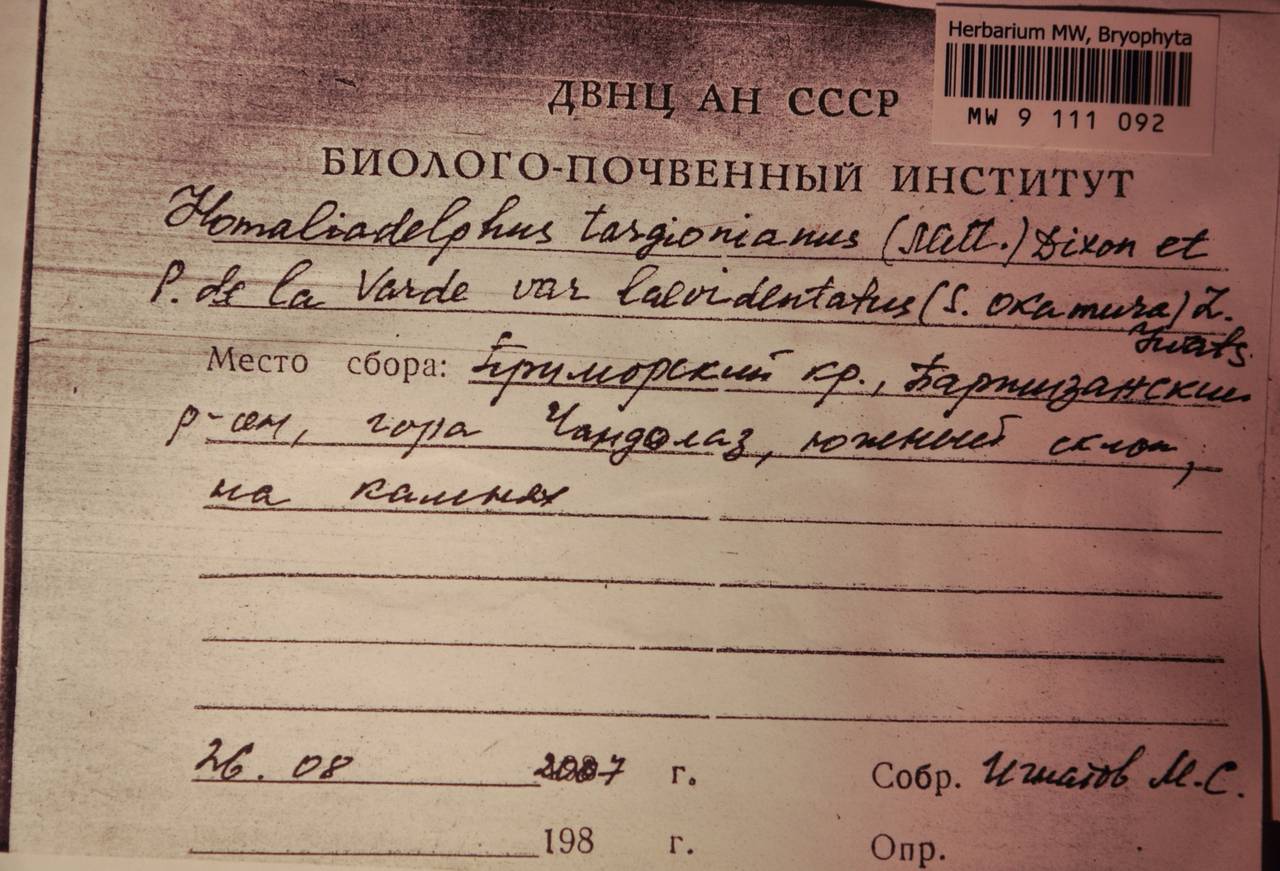 Herbarium MW, Bryophyta
MW 9 111 092
ДВНЦ АН СССР
БИОЛОГО-ПОЧВЕННЫЙ ИНСТИТУТ
Homaliadelphus targionianus (Mitt.) Dixon et
P. de la Varde var laevidentatus (S. Okamura) Z.
Iwats.
Место сбора: Приморский кр., Партизанский
р-он, гора Чандолаз, южный склон,
на камнях
26. 08 2007 г. Собр. Игнатов М.С.
198 г. Опр.